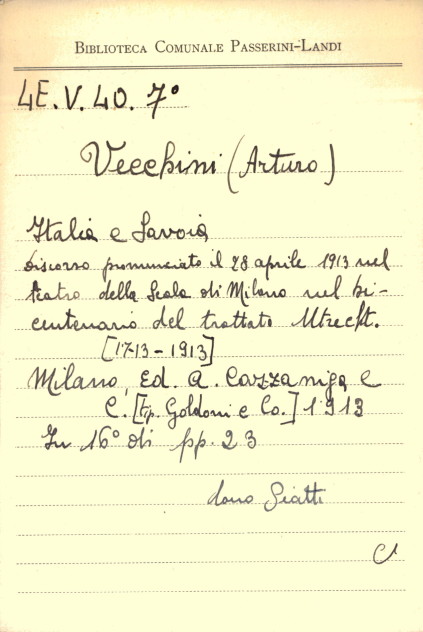 BIBLIOTECA COMUNALE PASSERINI-LANDI
4E.V.40.7°
Vecchini (Arturo)
Italia e Savoia
discorso pronunciato il 28 aprile 1913 nel
teatro della Scala di Milano nel bi-
centenario del trattato Utrecht.
[1713-1913]
Milano, Ed. A. Cazzaniga e
C. [Tip. Goldoni e Co.] 1913
In 16° di pp. 23
dono